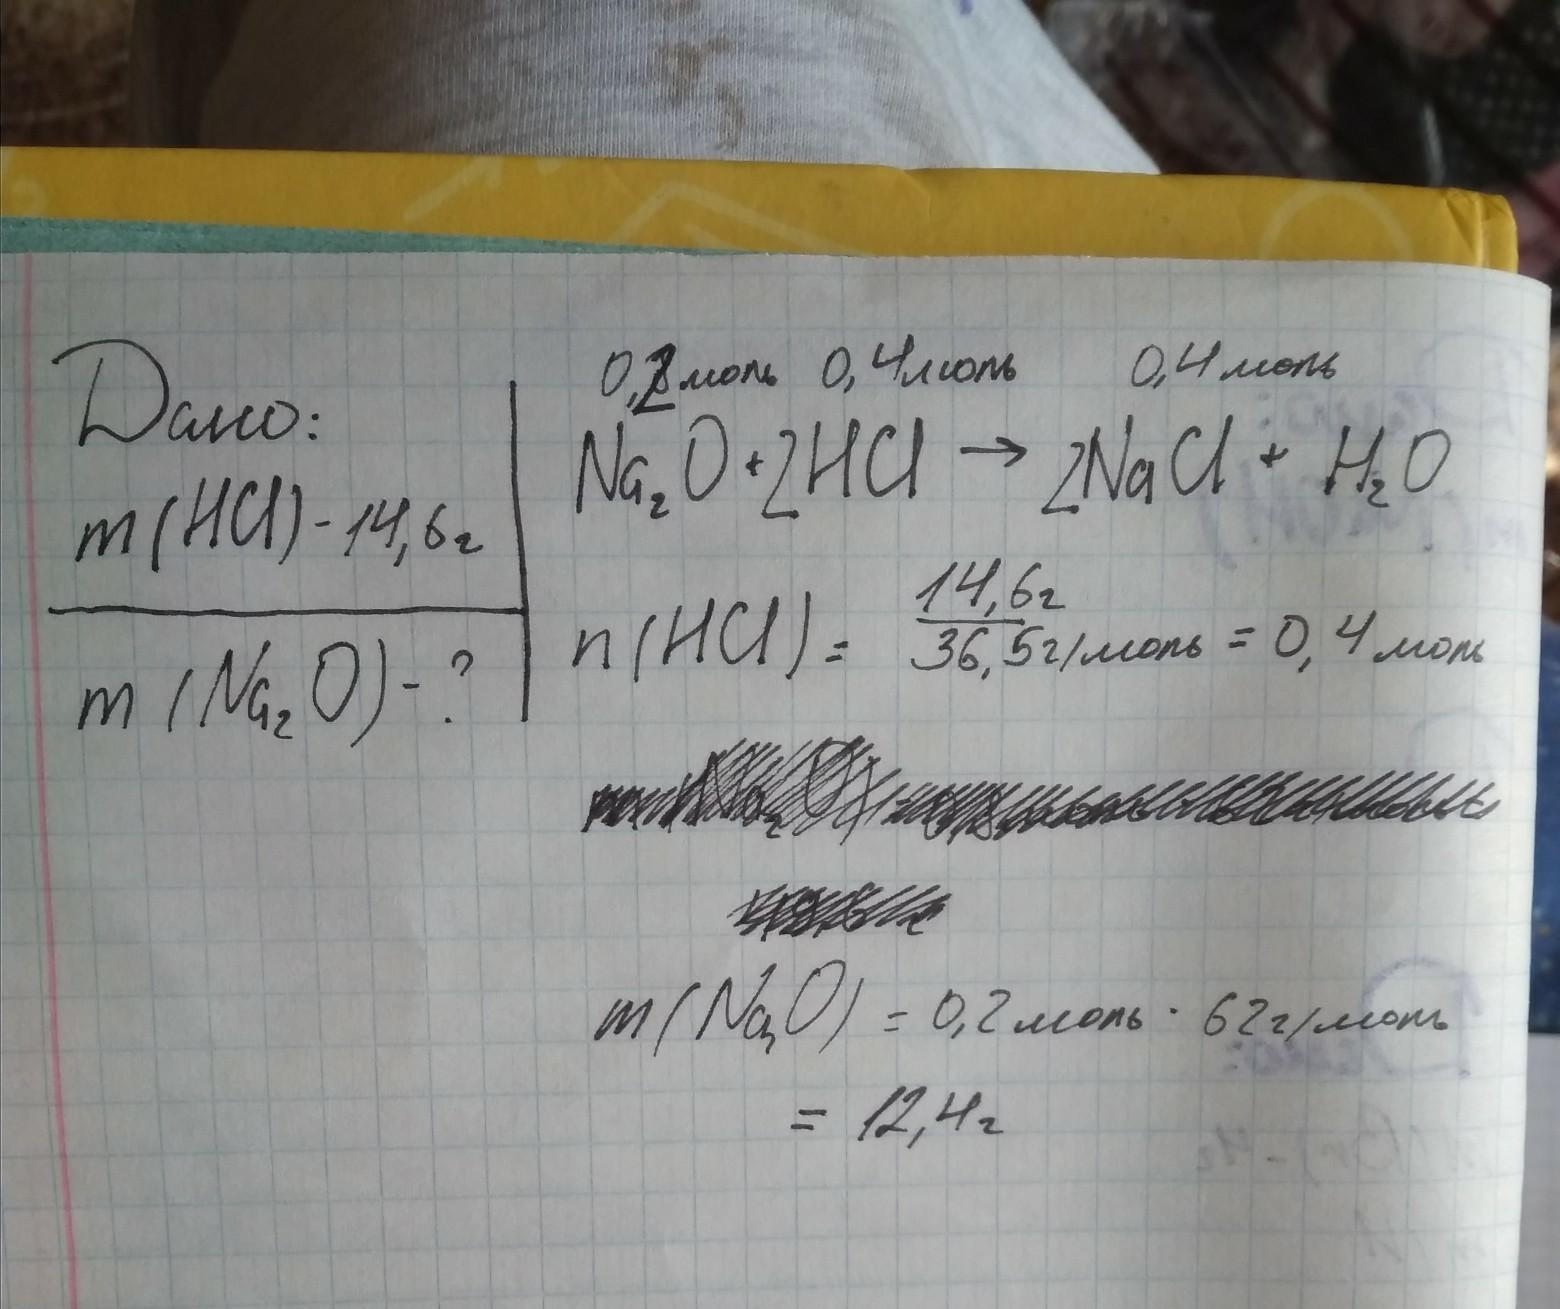 Дано:
m(HCl) - 14,6г
m(Na₂O) - ?
0,2моль 0,4моль 0,4моль
Na₂O + 2HCl → 2NaCl + H₂O
14,6г
n(HCl) = 36,5г/моль = 0,4моль
m(Na₂O) = 0,2моль · 62г/моль
= 12,4г